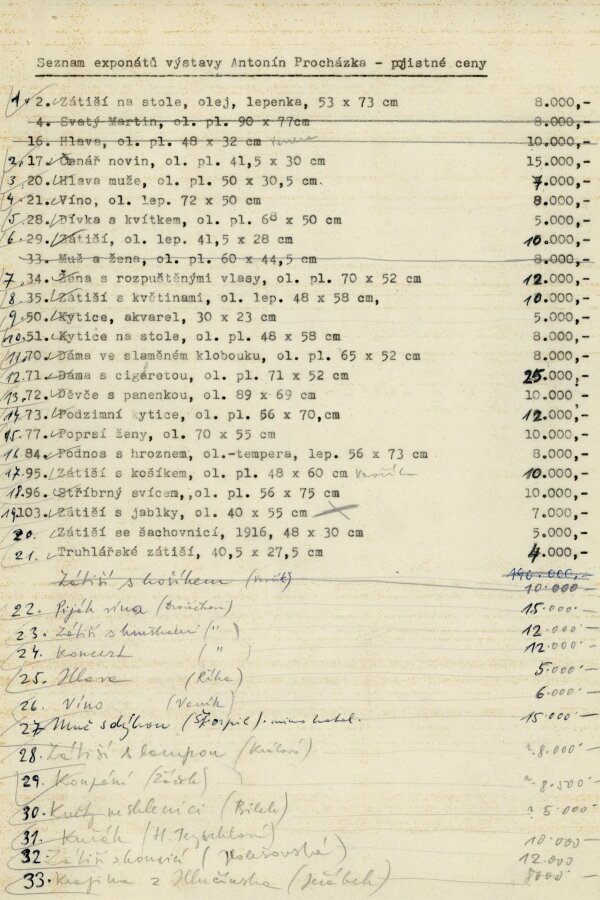 Seznam exponátů výstavy Antonín Procházka - pojistné ceny
1. 2. Zátiší na stole, olej, lepenka, 53 x 73 cm 8.000,-
4. Svatý Martin, ol. pl. 90 x 77cm 8.000,-
16. Hlava, ol. pl. 48 x 32 cm 10.000,-
2. 17. Čenář novin, ol. pl. 41,5 x 30 cm 15.000,-
3. 20. Hlava muže, ol. pl. 50 x 30,5 cm. 7.000,-
4. 21. Víno, ol. lep. 72 x 50 cm 8.000,-
5. 28. Dívka s kvítkem, ol. pl. 68 x 50 cm 5.000,-
6. 29. Zátiší, ol. lep. 41,5 x 28 cm 10.000,-
33. Muž a žena, ol. pl. 60 x 44,5 cm 8.000,-
7. 34. Žena s rozpuštěnými vlasy, ol. pl. 70 x 52 cm 12.000,-
8. 35. Zátiší s květinami, ol. lep. 48 x 58 cm, 10.000,-
9. 50. Kytice, akvarel, 30 x 23 cm 5.000,-
10. 51. Kytice na stole, ol. pl. 48 x 58 cm 8.000,-
11. 70. Dáma ve slaměném klobouku, ol. pl. 65 x 52 cm 8.000,-
12. 71. Dáma s cigaretou, ol. pl. 71 x 52 cm 25.000,-
13. 72. Děvče s panenkou, ol. 89 x 69 cm 10.000 -
14. 73. Podzimní kytice, ol. pl. 56 x 70,cm 12.000,-
15. 77. Poprsí ženy, ol. 70 x 55 cm 10.000,-
16. 84. Podnos s hroznem, ol.-tempera, lep. 56 x 73 cm 8.000,-
17. 95. Zátiší s košíkem, ol. pl. 48 x 60 cm 10.000,-
18. 96. Stříbrný svícem,,ol. pl. 56 x 75 cm 10.000,-
19. 103. Zátiší s jablky, ol. 40 x 55 cm 7.000,-
20. Zátiší se šachovnicí, 1916, 48 x 30 cm 5.000,-
21. Truhlářské zátiší, 40,5 x 27,5 cm 4.000,-
Zátiší s košíkem (Vaník) 190.000,-
10.000 -
22. Piják vína 15.000 -
23. Zátiší s hruškami ( " ) 12.000 -
24. Koncert ( " ) 12.000 -
25. Hlava (Říha) 5.000 -
26. Víno (Vaník) 6.000 -
27. Muž s dýmkou (Škorpil) 15.000 -
28. Zátiší s lampou (Králová) ? 8.000 -
29. Koupání ? 8.500 -
30. Květy ve sklenici (Bílek) ? 5.000 -
31. Kuřák (H. Teyschlová) 10.000 -
32. Zátiší s konvicí 12.000
33. Krajina z Hlučínska (Jeřábek) 8000 -